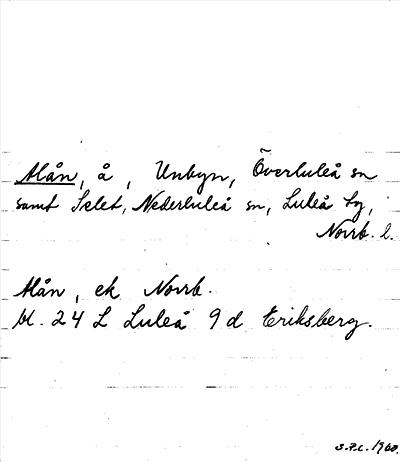 Alån, å, Unbyn, Överluleå sn
samt Selet, Nederluleå sn, Luleå tg,
Norrb. l.
Alån, ek Norrb.
bl. 24 L Luleå 9 d Eriksberg.
S.P.C. 1960.